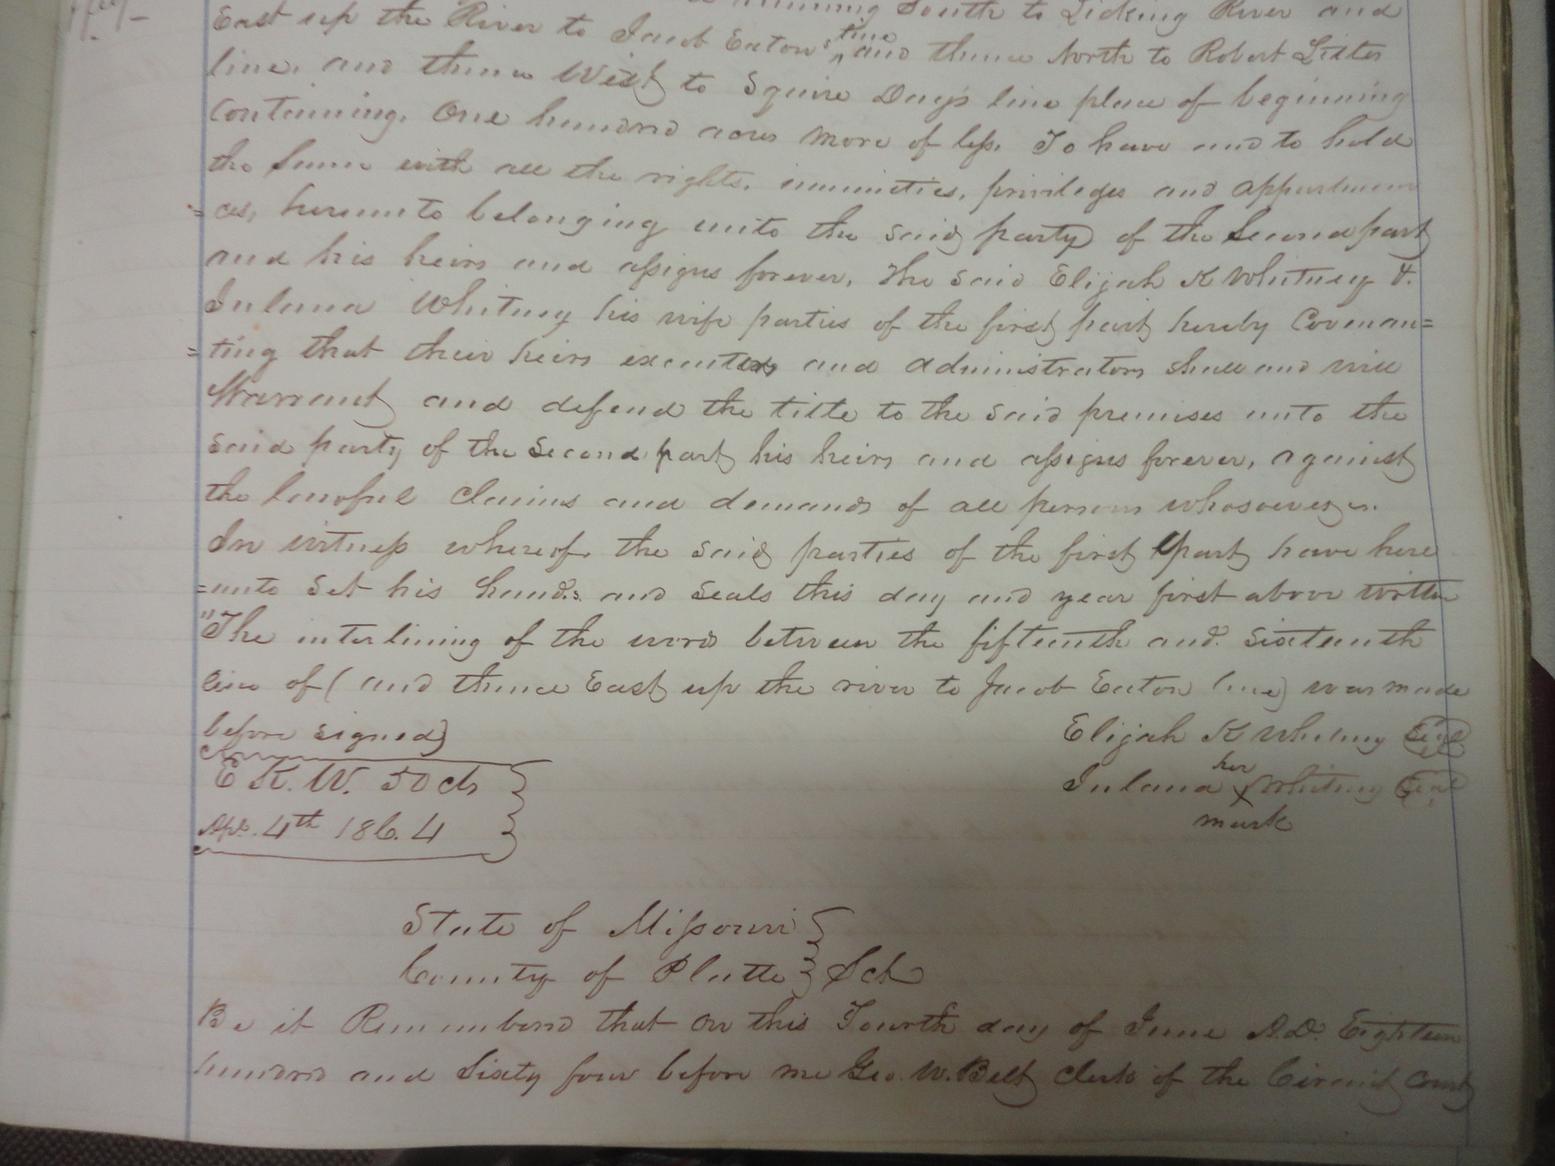 running South to Licking River and
East up the River to Jacob Eaton's line and thence North to Robert Lister
line, and thence West to Squire Day's line place of beginning
Containing, One hundred acres more of less. To have and to hold
the same with all the rights, immunities, privileges and appurtenan
=ces, hereunto belonging unto the said party of the Second part
and his heirs and assigns forever, The said Elijah K Whitney &
Inlana Whitney his wife parties of the first part hereby Covenan=
=ting that their heirs executors and administrators shall and will
Warrant and defend the title to the said premises unto the
said party of the Second part his heirs and assigns forever, against
the lawful claims and demands of all persons whosoever.
In witness whereof, the said parties of the first part have here
=unto Set his hands and Seals this day and year first above written
"The interlining of the word between the fifteenth and sixteenth
line of (and thence East up the river to Jacob Eaton line) was made
before signed)
Elijah K Whitney Seal
E K. W. 50 cts
her
Inlana x Whitney Seal
mark
Apl. 4th 1864
State of Missouri
County of Platte } Sct
Be it Remembered that on this Fourth day of June A.D. Eighteen
hundred and Sixty four before me Geo. W. Belt Clerk of the Circuit Court